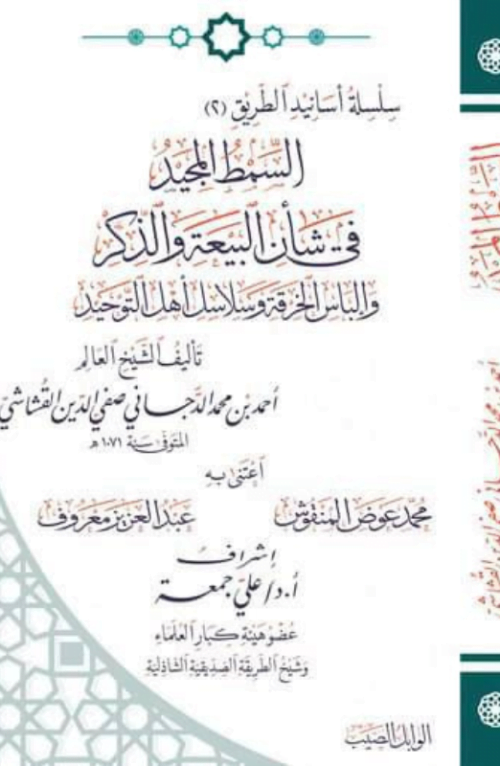 سلسلة أسانيد الطريق (٢)
السمط المجيد
في شأن البيعة والذكر
وإلباس الخرقة وسلاسل أهل التوحيد
تأليف الشيخ العالم
أحمد بن محمد الدجاني صفي الدين القشاشي
المتوفى سنة ١٠٧١ هـ
اعتنى به
محمد عوض المنقوش
عبد العزيز معروف
إشراف
أ.د/ علي جمعة
عضو هيئة كبار العلماء
وشيخ الطريقة الصديقية الشاذلية
الوابل الصيب
السمط المجيد
أحمد بن محمد الدجاني صفي الدين القشاشي